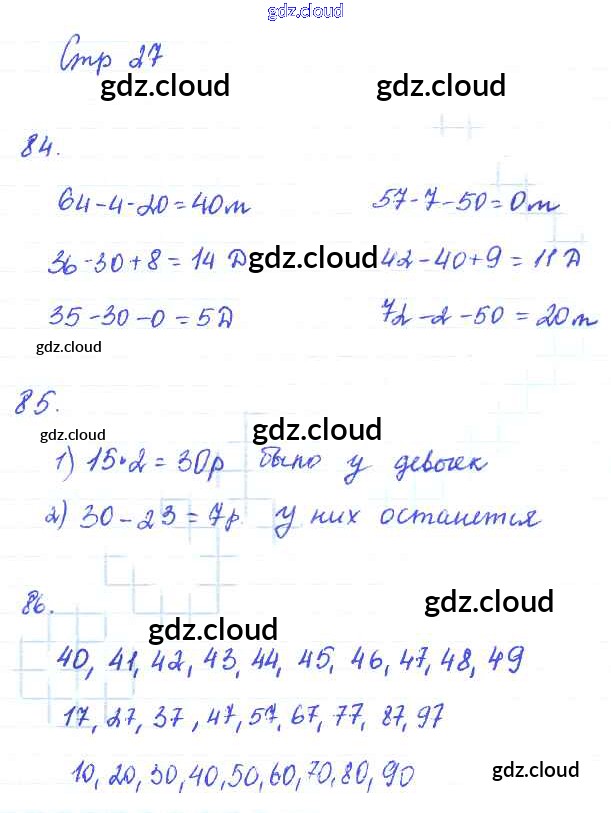 gdz.cloud
Стр 27
gdz.cloud gdz.cloud
84.
64-4-20=40т 57-7-50=0т
36-30+8=14 Д gdz.cloud 42-40+9=11Д
35-30-0=5Д 72-2-50=20т
gdz.cloud
85.
gdz.cloud gdz.cloud
1) 15·2=30р было у девочек
2) 30-23=7р. у них останется
86.
gdz.cloud
gdz.cloud
40, 41, 42, 43, 44, 45, 46, 47, 48, 49
17, 27, 37, 47, 57, 67, 77, 87, 97
10, 20, 30, 40, 50, 60, 70, 80, 90
gdz.cloud